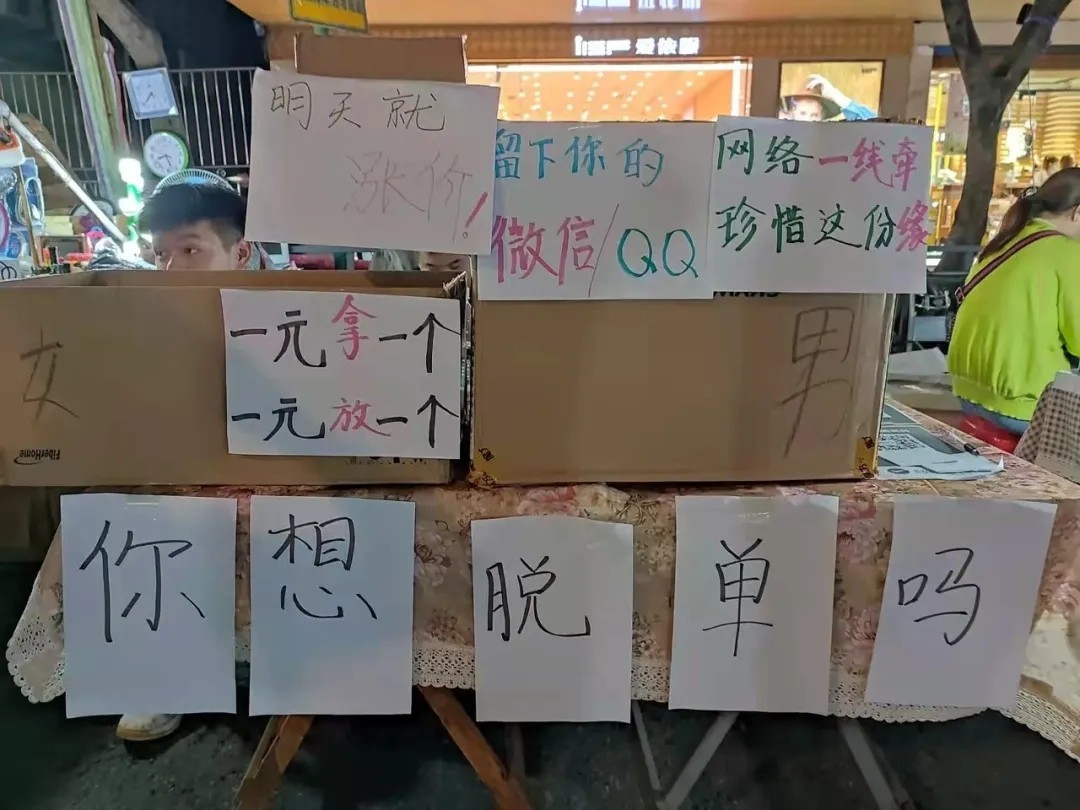 爱依服
明天就
涨价!
留下你的
微信/QQ
网络一线牵
珍惜这份缘
女
一元拿一个
一元放一个
男
FiberHome
你想脱单吗